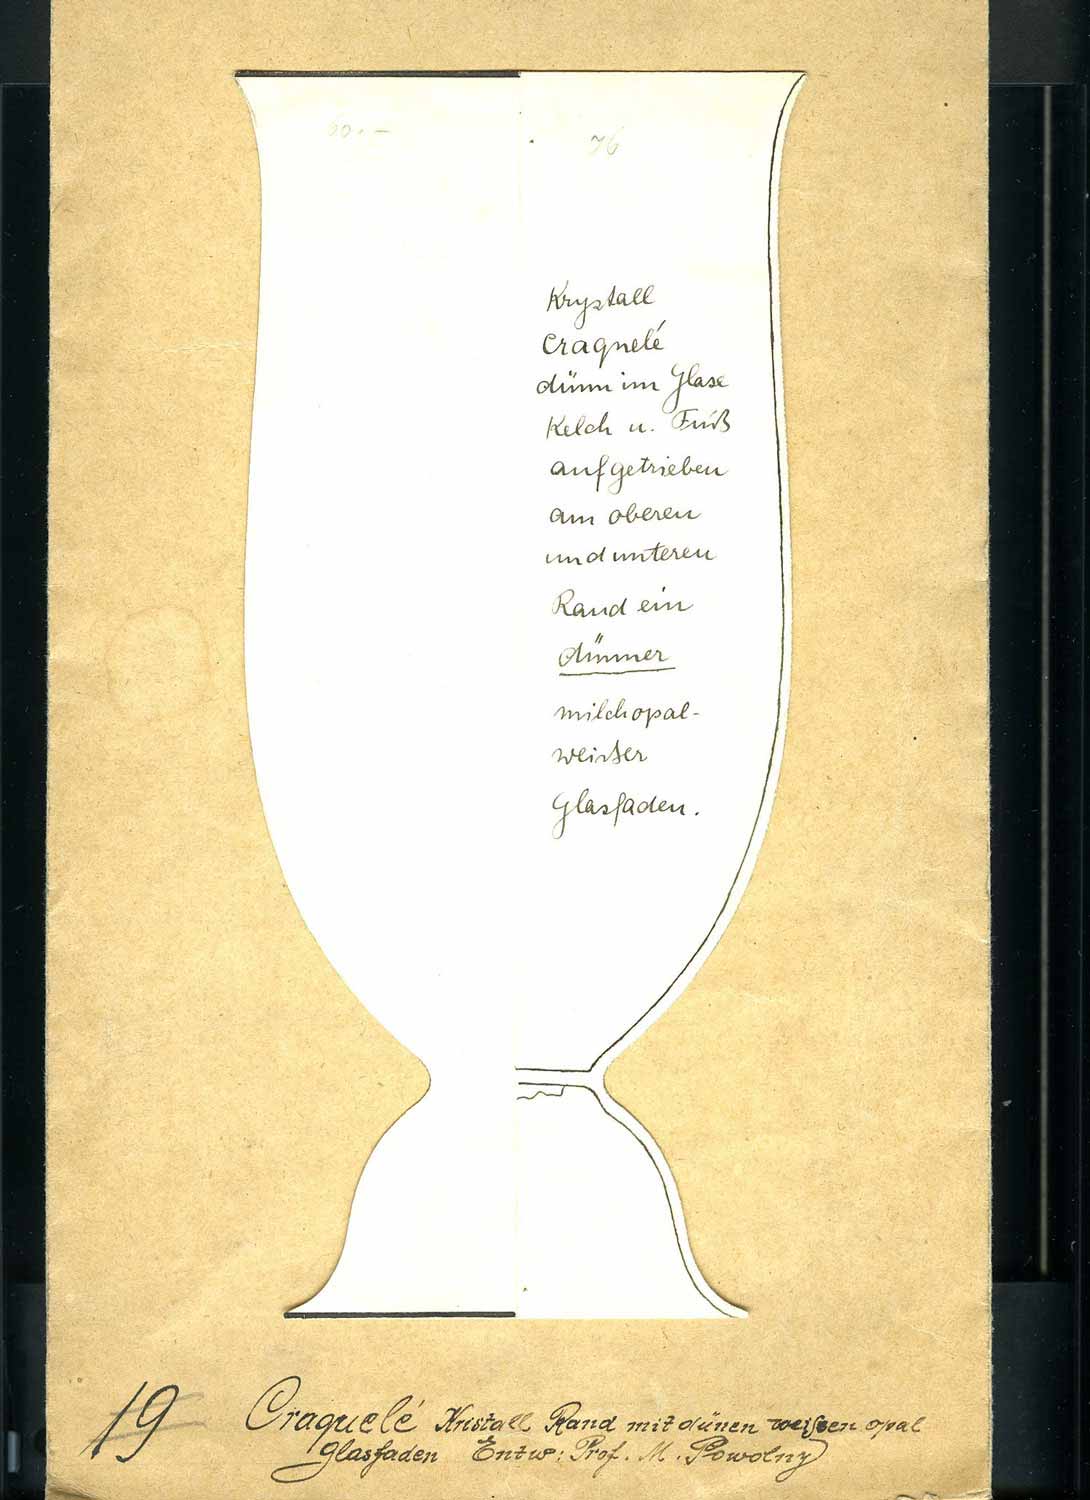 60.- 76
Krystall
Craquelé
dünn im Glase
Kelch u. Fuß
aufgetrieben
am oberen
und unteren
Rand ein
dünner
milchopal-
weisser
Glasfaden.
19 Craquelé Kristall Rand mit dünen weißen opal
Glasfaden Entw: Prof. M. Powolny